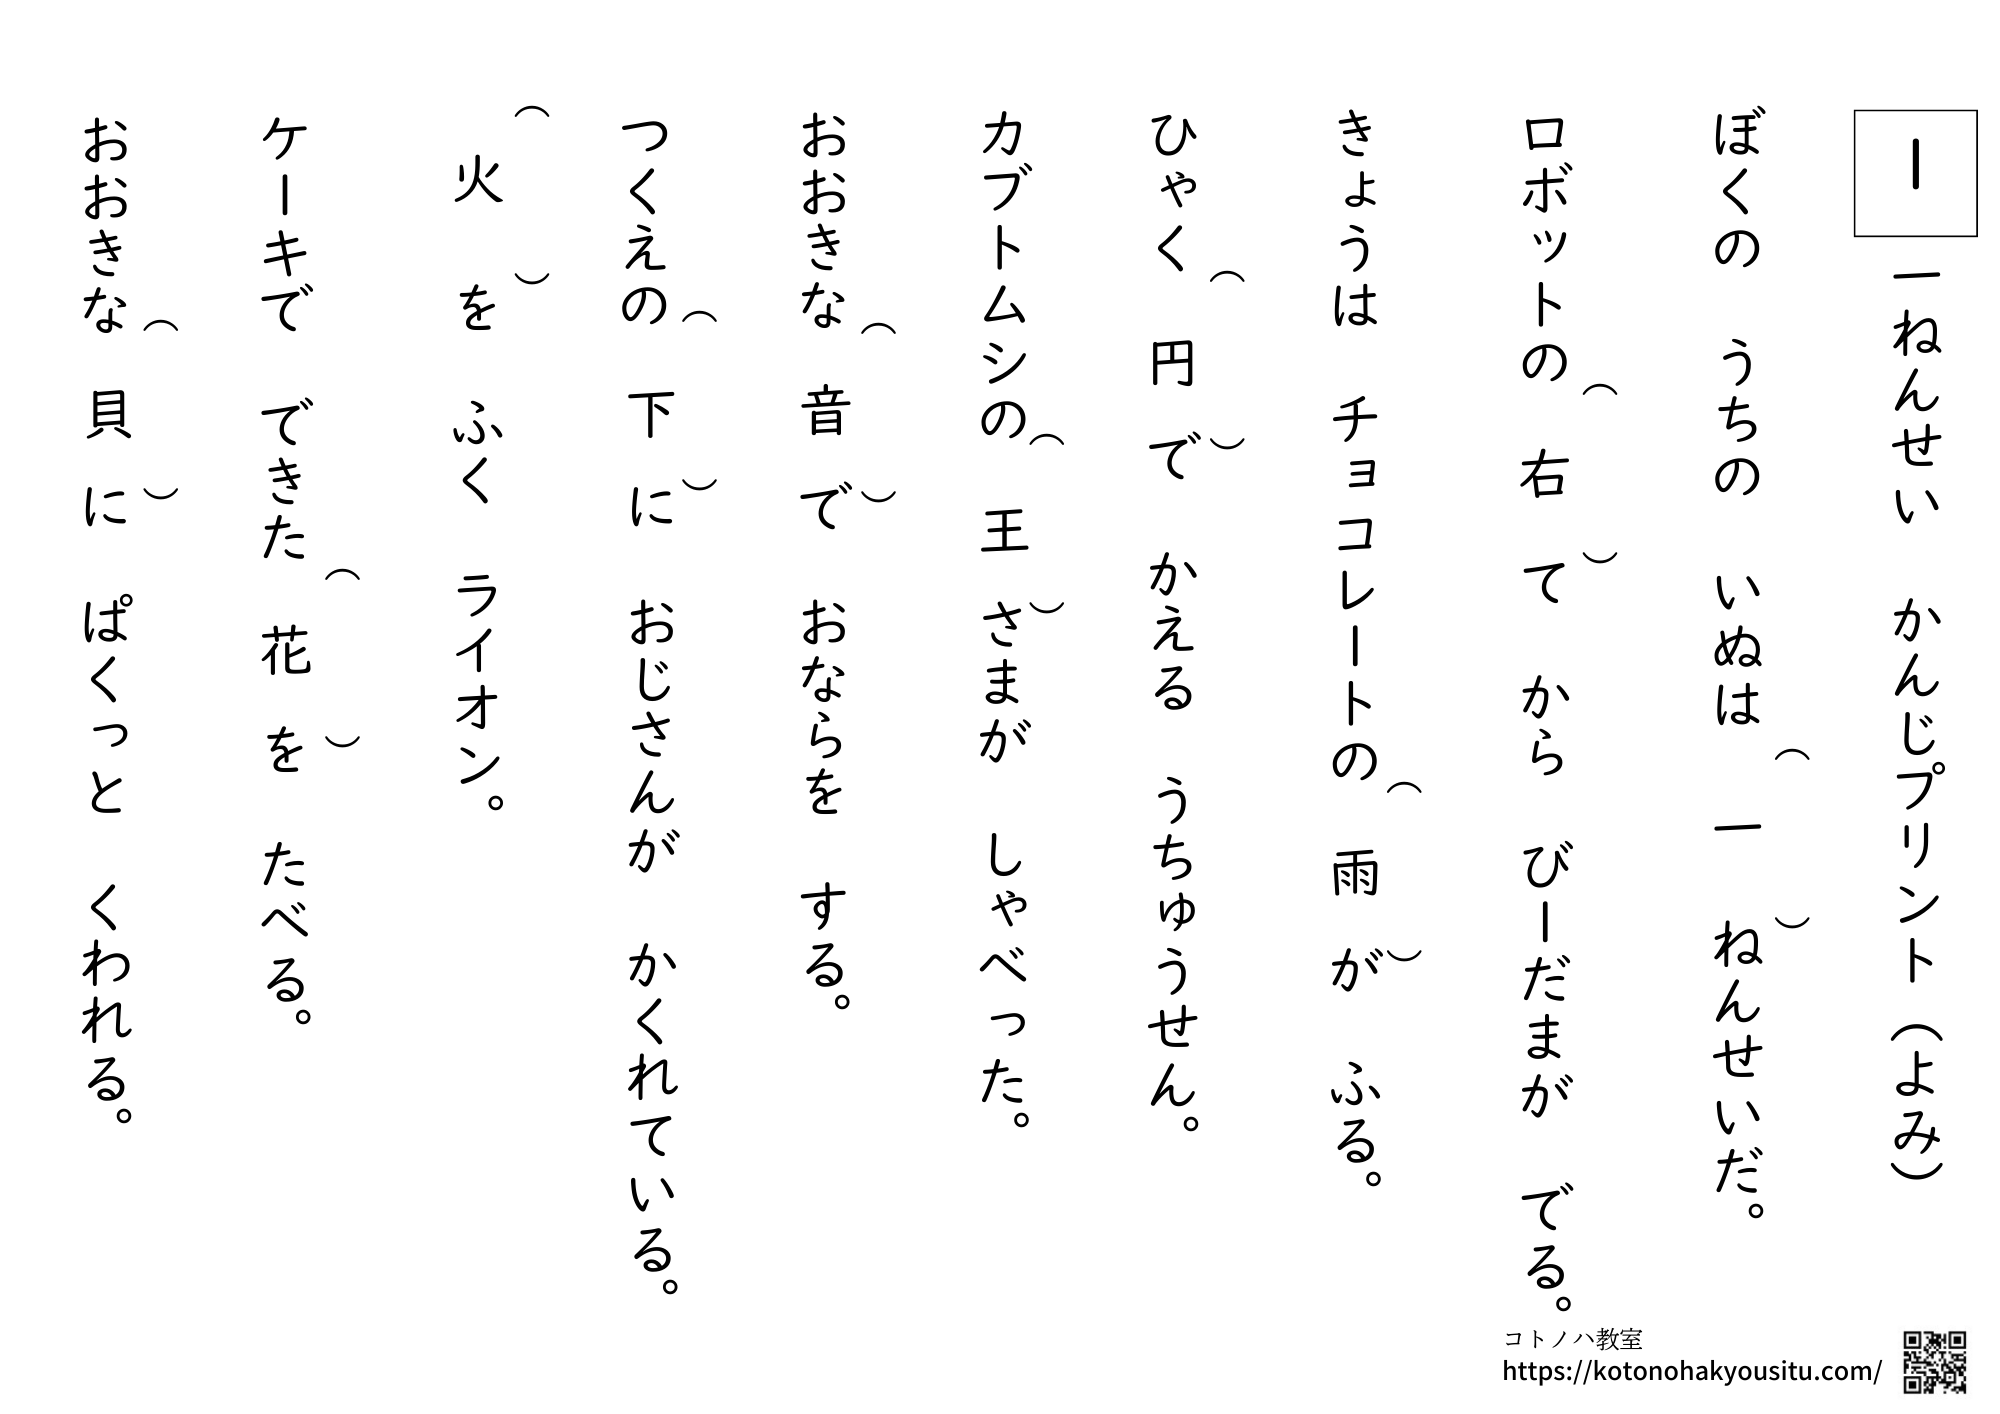 1 一ねんせい かんじプリント（よみ）
ぼくの うちの いぬは （ 一 ）ねんせいだ。
ロボットの（ 右 ）て から びーだまが でる。
きょうは チョコレートの（ 雨 ）が ふる。
ひゃく（ 円 ）で かえる うちゅうせん。
カブトムシの（ 王 ）さまが しゃべった。
おおきな（ 音 ）で おならを する。
つくえの（ 下 ）に おじさんが かくれている。
（ 火 ）を ふく ライオン。
ケーキで できた（ 花 ）を たべる。
おおきな（ 貝 ）に ぱくっと くわれる。
コトノハ教室
https://kotonohakyousitu.com/